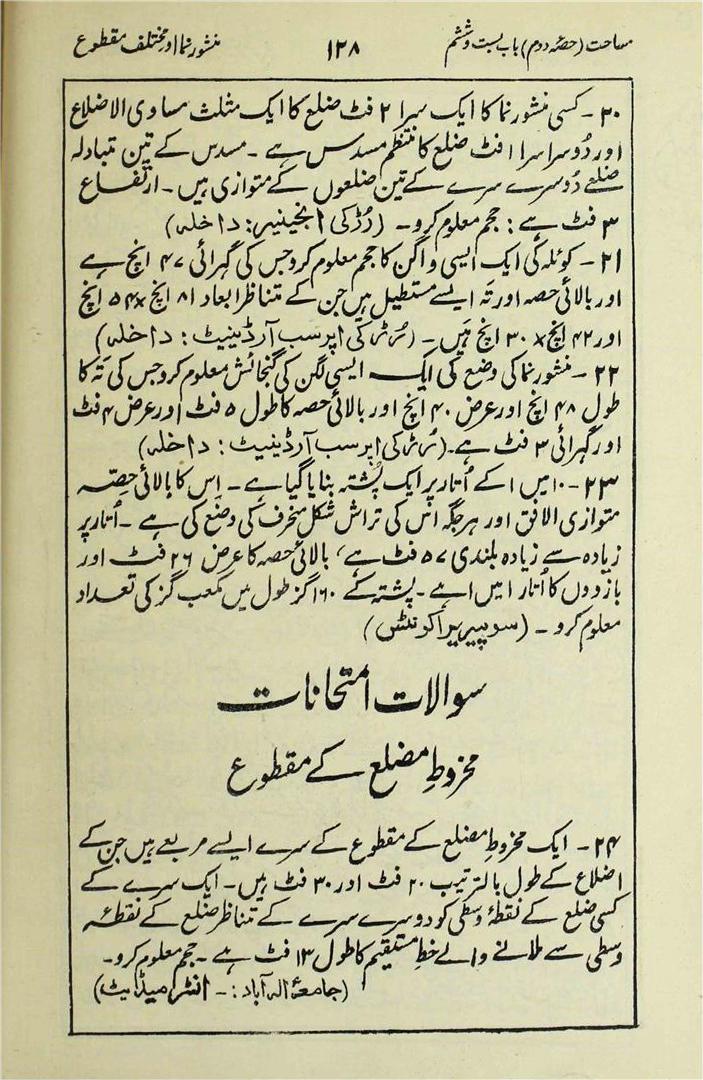 مساحت (حصۂ دوم) باب بست و ششم ۱۲۸ منشور نما اور مختلف مقطوع
۲۰ - کسی منشور نما کا ایک سرا ۲ فٹ ضلع کا ایک مثلث مساوی الاضلاع
اور دُوسرا سرا ۱ فٹ ضلع کا منتظم مسدس ہے - مسدس کے تین متبادلہ
ضلعے دُوسرے سرے کے تین ضلعوں کے متوازی ہیں - ارتفاع
۳ فٹ ہے : حجم معلوم کرو - (رُڑکی انجینیر : داخلہ)
۲۱ - کوئلہ کی ایک ایسی واگن کا حجم معلوم کرو جس کی گہرائی ۴۷ انچ ہے
اور بالائی حصہ اور تَہ ایسے مستطیل ہیں جن کے متناظر ابعاد ۸۱ انچ × ۵۴ انچ
اور ۴۲ انچ × ۳۰ انچ ہیں - (رُڑکی اپر سب آرڈینیٹ : داخلہ)
۲۲ - منشور نما کی وضع کی ایک ایسی لگن کی گنجائش معلوم کرو جس کی تَہ کا
طول ۴۸ انچ اور عرض ۴۰ انچ اور بالائی حصہ کا طول ۵ فٹ اور عرض ۴ فٹ
اور گہرائی ۳ فٹ ہے - (رُڑکی اپر سب آرڈینیٹ : داخلہ)
۲۳ - ۱۰ میں ۱ کے اُتار پر ایک پُشتہ بنایا گیا ہے - اِس کا بالائی حِصّہ
متوازی الافق اور ہر جگہ اس کی تراش شکل منحرف کی وضع کی ہے - اُتار پر
زیادہ سے زیادہ بلندی ۵۷ فٹ ہے، بالائی حصہ کا عرض ۲۶ فٹ اور
بازووں کا اُتار ۱ میں ۱ ہے - پشتہ کے ۱۶۰ گز طول میں مکعب گز کی تعداد
معلوم کرو - (سوپیریر اکونٹس)
سوالات امتحانات
مخروطِ مضلع کے مقطوع
۲۴ - ایک مخروطِ مضلع کے مقطوع کے سرے ایسے مربعے ہیں جن کے
اضلاع کے طول بالترتیب ۲۰ فٹ اور ۳۰ فٹ ہیں - ایک سرے کے
کسی ضلع کے نقطۂ وسطی کو دوسرے سرے کے تناظر ضلع کے نقطۂ
وسطی سے ملانے والے خطِ مستقیم کا طول ۱۳ فٹ ہے - حجم معلوم کرو -
(جامعۂ الہ آباد : - انٹرمیڈیٹ)